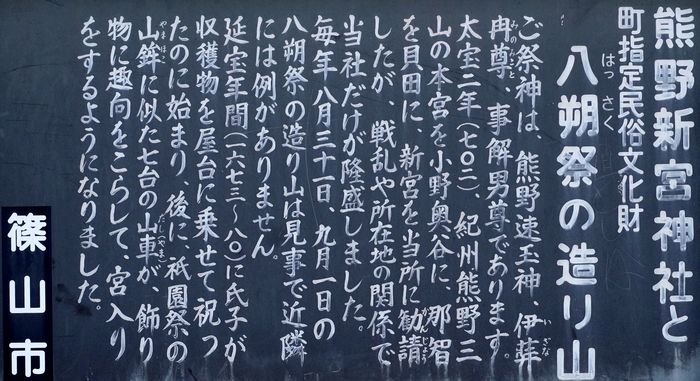 熊野新宮神社と
町指定民俗文化財
はっさく
八朔祭の造り山
ご祭神は、熊野速玉神、伊弉
いざな
冉尊、事解男尊であります。
みのみこと
太宝二年(七〇二)紀州熊野三
山の本宮を小野奥谷に、那智
を貝田に、新宮を当所に勧請
かんじょう
したが、戦乱や所在地の関係で
当社だけが隆盛しました。
毎年八月三十一日、九月一日の
八朔祭の造り山は見事で近隣
には例がありません。
延宝年間(一六七三~八〇)に氏子が
収獲物を屋台に乗せて祝っ
たのに始まり、後に、祇園祭の
山鉾に似た七台の山車が、飾り
やまほこ
だしつやま
物に趣向をこらして、宮入り
をするようになりました。
篠山市